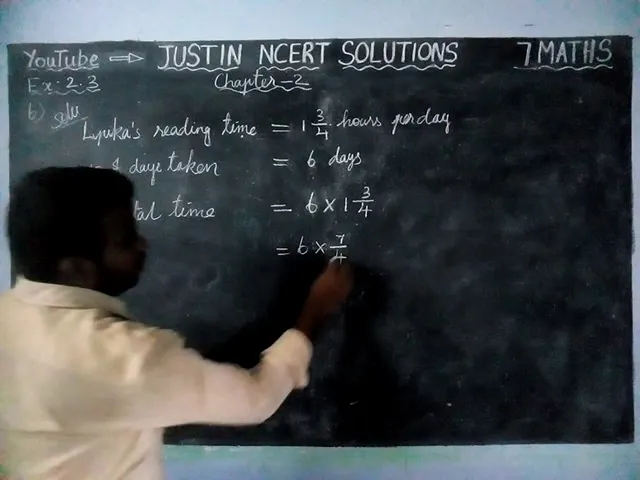 YouTube ⇒ JUSTIN NCERT SOLUTIONS 7 MATHS
Ex: 2.3 Chapter-2
6) Solu
Lyuka's reading time = 1 3/4 hours per day
days taken = 6 days
time = 6 × 1 3/4
= 6 × 7/4